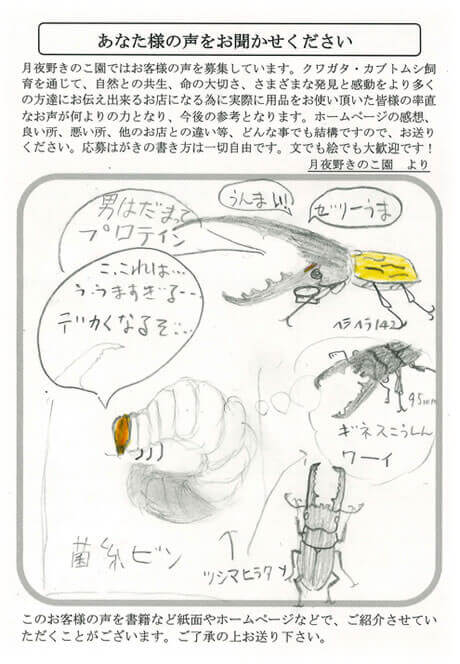 あなた様の声をお聞かせください
月夜野きのこ園ではお客様の声を募集しています。クワガタ・カブトムシ飼
育を通じて、自然との共生、命の大切さ、さまざまな発見と感動をより多く
の方達にお伝え出来るお店になる為に実際に用品をお使い頂いた皆様の率直
なお声が何よりの力となり、今後の参考となります。ホームページの感想、
良い所、悪い所、他のお店との違い等、どんな事でも結構ですので、お送り
ください。応募はがきの書き方は一切自由です。文でも絵でも大歓迎です！
月夜野きのこ園　より
男はだまって
プロテイン
うんまい!!
ゼリーうま
こ、これは…
う、うますぎるー
デカくなるぞ…
ヘラヘラ142
95mm
ギネスこうしん
ワーイ
菌糸ビン
ツシマヒラタ
このお客様の声を書籍など紙面やホームページなどで、ご紹介させてい
ただくことがございます。ご了承の上お送り下さい。